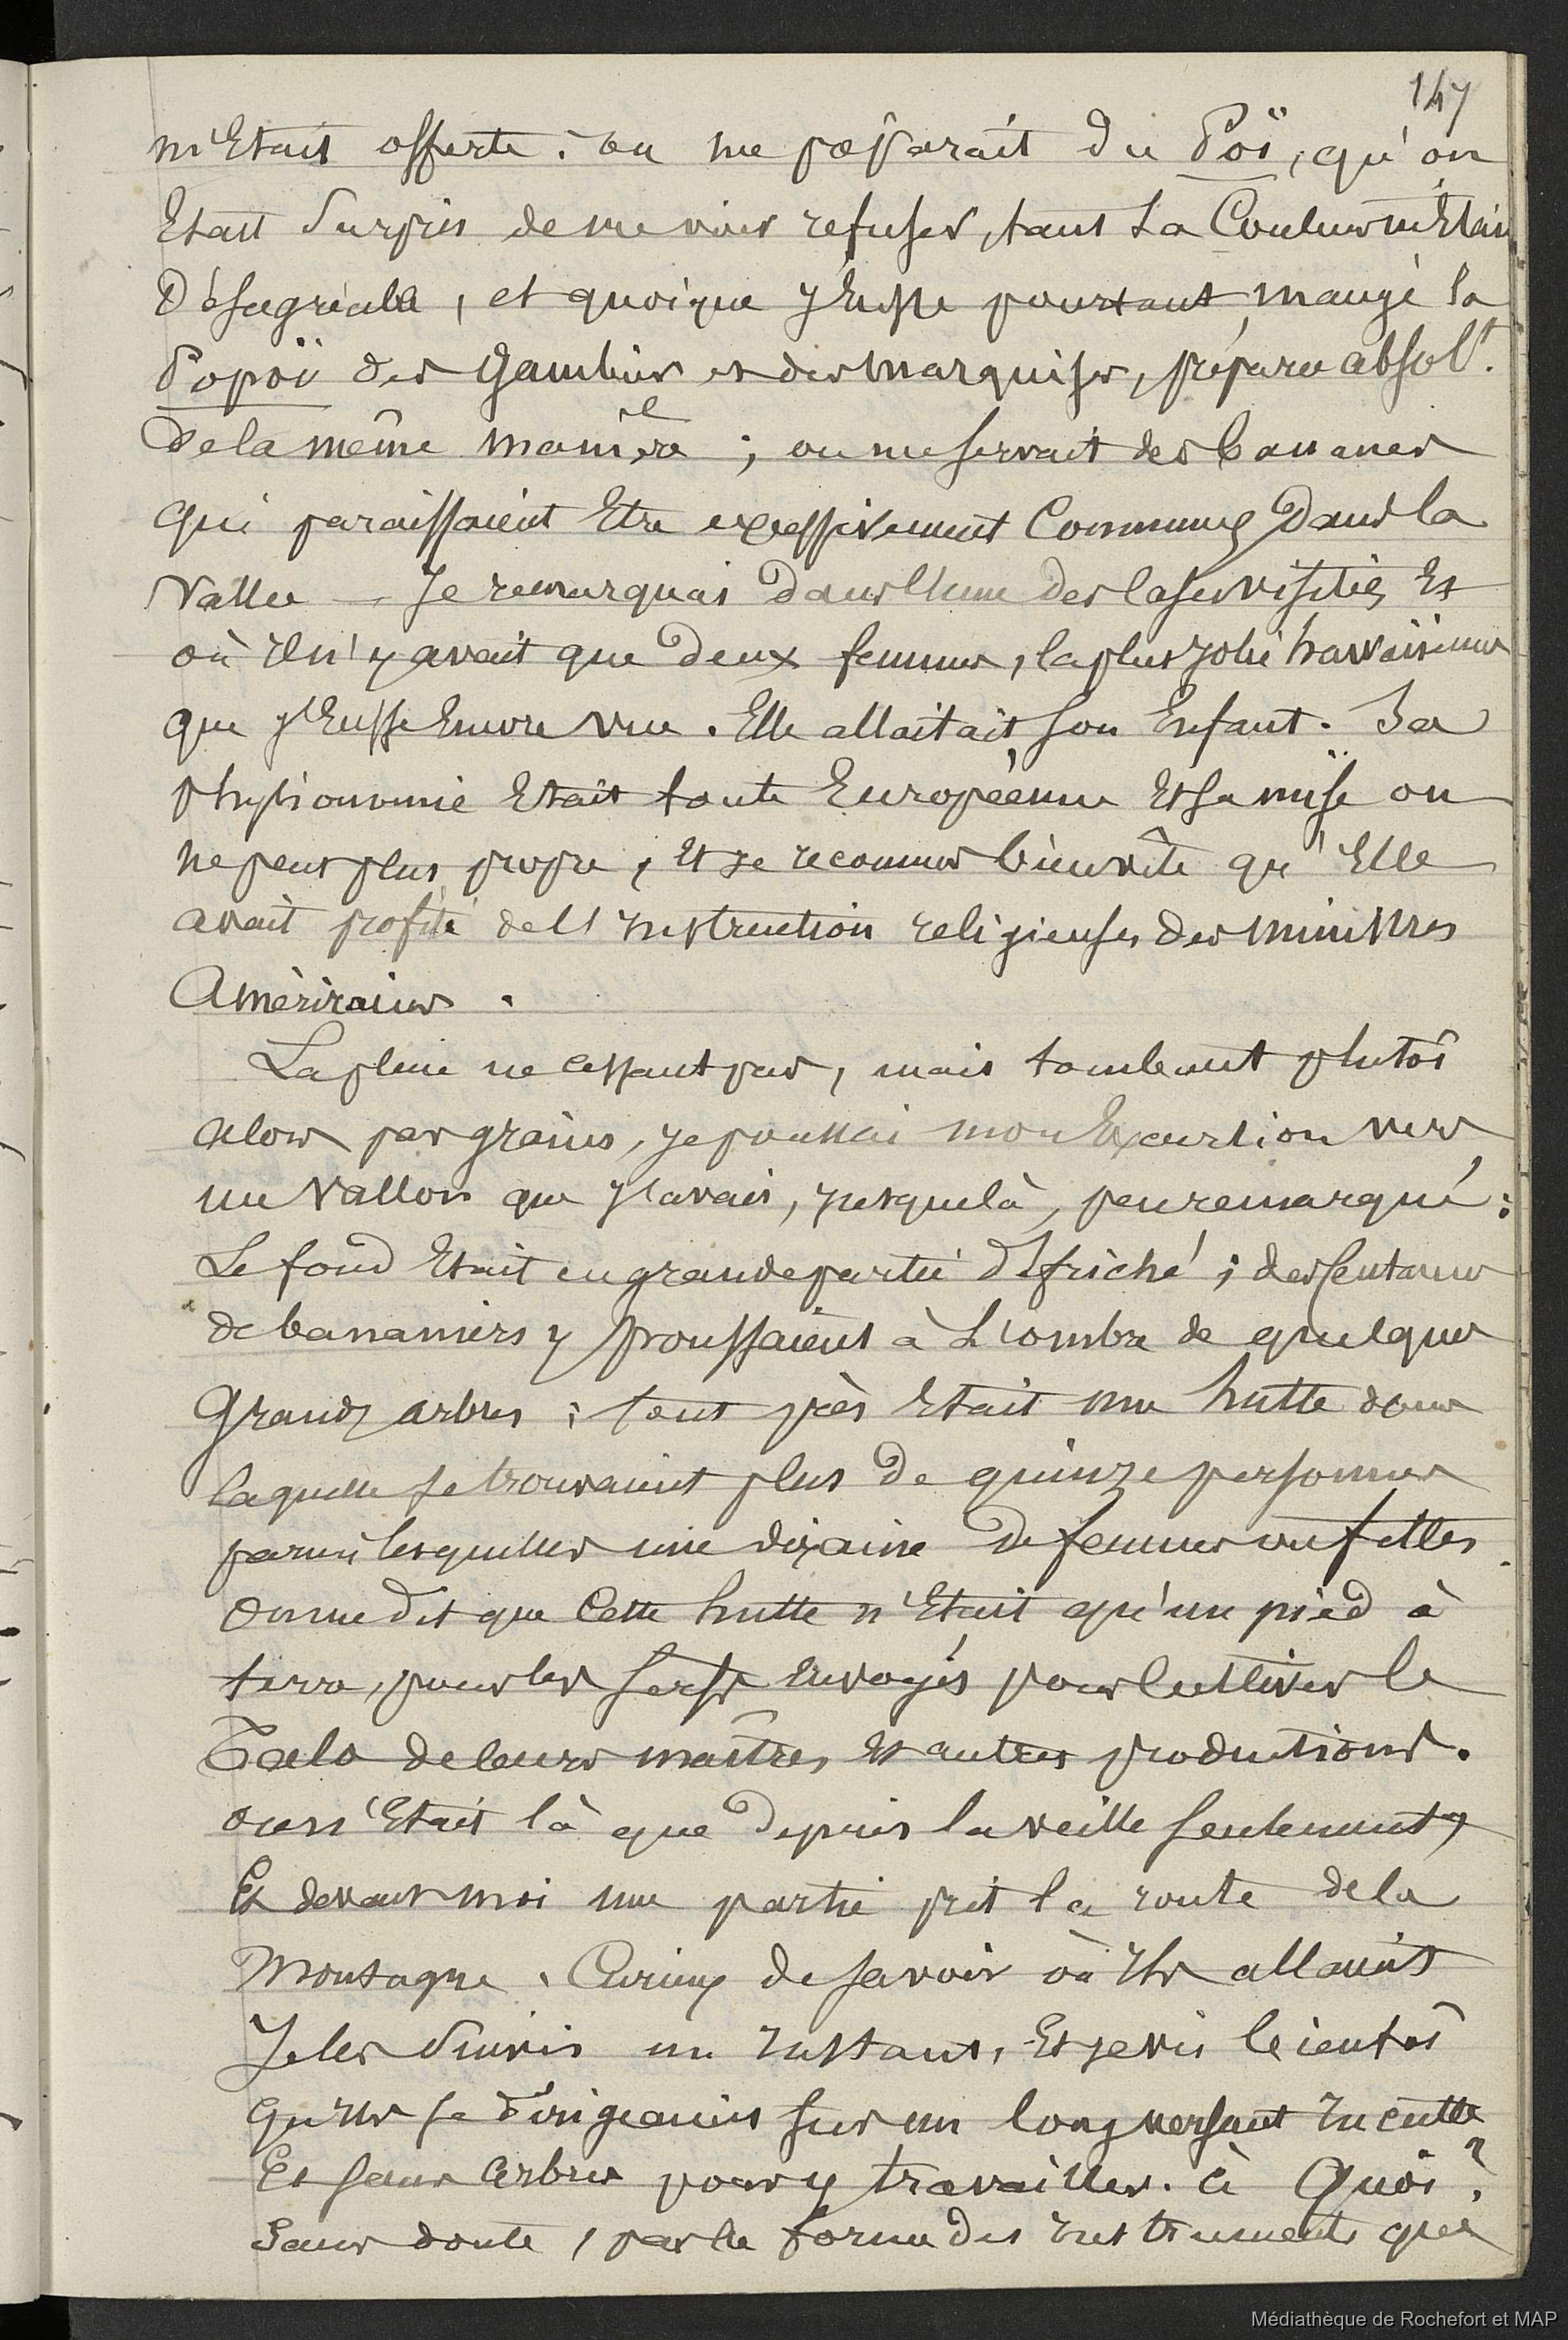 147
m'était offerte. on me préparait du Poï, qu'on
était surpris de me voir refuser, tant sa Couleur m'était
Désagréable, et quoique j'eusse pourtant mangé la
Popoï des Gambier et des marquises, préparée absol.t
De la même manière ; on me servait des bananes
qui paraissaient Etre excessivement Communes Dans la
Vallée — Je remarquai Dans l'une des cases visitées, Et
où il n'y avait que Deux femmes, la plus jolie hawaïienne
que j'eusse encore vue. Elle allaitait son Enfant. Sa
physionomie Etait toute Européenne Et sa mise on
ne peut plus propre, Et je reconnus bien vîte qu'Elle
avait profité de l'instruction religieuse des ministres
Américains.
La pluie ne cessant pas, mais tombant plutôt
alors par grains, je poussai mon Excursion vers
un Vallon que j'avais, jusque là, peu remarqué :
Le fond Etait en grande partie défriché ; des centaines
de bananiers y poussaient à L'ombre de quelques
Grands arbres ; tout près Etait une hutte dans
laquelle se trouvaient plus De quinze personnes
parmi lesquelles une dixaine De femmes ou filles.
On me dit que Cette hutte n'Etait qu'un pied à
terre, pour les serfs Envoyés pour cultiver le
Talo de leurs maîtres, Et autres productions.
on n'Etait là que Depuis la veille seulement,
Et devant moi une partie prit la route de la
Montagne. Curieux de savoir où Ils allaient
Je les Suivis un Instant, Et je vis bientôt
qu'Ils se dirigeaient sur un long versant Inculte
Et sans Arbres pour y travailler. à Quoi ?
Sans doute, par la forme des Instruments que
Médiathèque de Rochefort et MAP